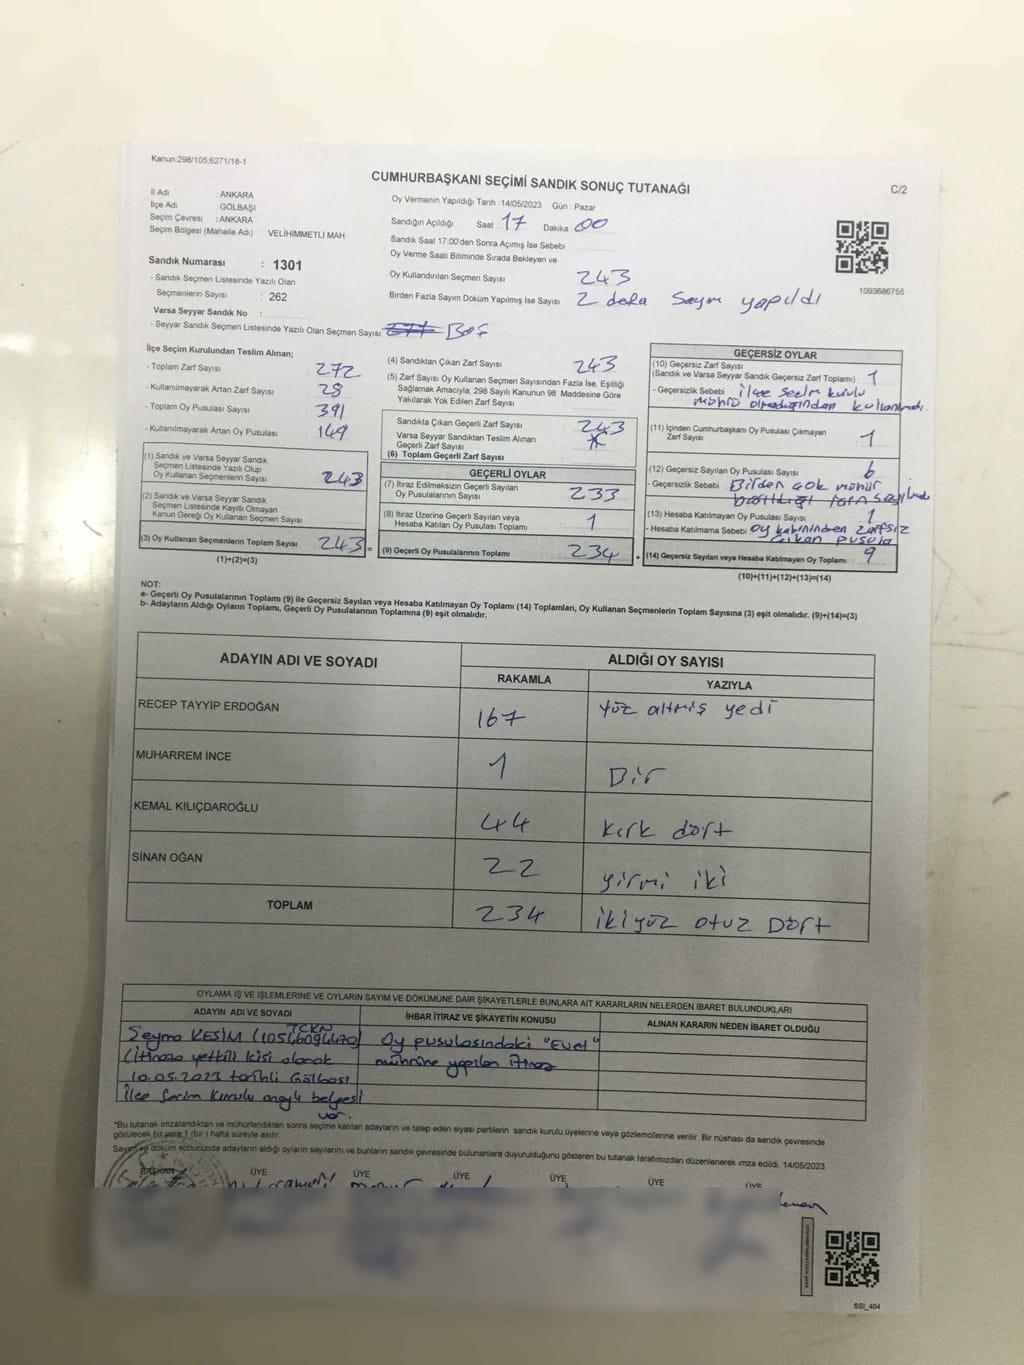 Kanun:298/105,6271/18-1
CUMHURBAŞKANI SEÇİMİ SANDIK SONUÇ TUTANAĞI
C/2
İl Adı : ANKARA
İlçe Adı : GÖLBAŞI
Seçim Çevresi : ANKARA
Seçim Bölgesi (Mahalle Adı) : VELİHİMMETLİ MAH
Sandık Numarası : 1301
- Sandık Seçmen Listesinde Yazılı Olan
Seçmenlerin Sayısı : 262
Varsa Seyyar Sandık No :
- Seyyar Sandık Seçmen Listesinde Yazılı Olan Seçmen Sayısı Boş
Oy Vermenin Yapıldığı Tarih :14/05/2023 Gün : Pazar
Sandığın Açıldığı Saat 17 Dakika 00
Sandık Saat 17:00'den Sonra Açımış İse Sebebi
Oy Verme Saati Bitiminde Sırada Bekleyen ve
Oy Kullandırılan Seçmen Sayısı 243
Birden Fazla Sayım Döküm Yapılmış İse Sayısı 2 defa Sayım yapıldı
1093686755
İlçe Seçim Kurulundan Teslim Alınan;
- Toplam Zarf Sayısı 272
- Kullanılmayarak Artan Zarf Sayısı 28
- Toplam Oy Pusulası Sayısı 391
- Kullanılmayarak Artan Oy Pusulası 149
(1) Sandık ve Varsa Seyyar Sandık
Seçmen Listesinde Yazılı Olup
Oy Kullanan Seçmenlerin Sayısı 243
(2) Sandık ve Varsa Seyyar Sandık
Seçmen Listesinde Kayıtlı Olmayan
Kanun Gereği Oy Kullanan Seçmen Sayısı
(3) Oy Kullanan Seçmenlerin Toplam Sayısı 243 =
(1)+(2)=(3)
(4) Sandıktan Çıkan Zarf Sayısı 243
(5) Zarf Sayısı Oy Kullanan Seçmen Sayısından Fazla İse, Eşitliği
Sağlamak Amacıyla, 298 Sayılı Kanunun 98 Maddesine Göre
Yakılarak Yok Edilen Zarf Sayısı
Sandıkta Çıkan Geçerli Zarf Sayısı 243
Varsa Seyyar Sandıktan Teslim Alınan
Geçerli Zarf Sayısı
(6) Toplam Geçerli Zarf Sayısı
GEÇERLİ OYLAR
(7) İtiraz Edilmeksizin Geçerli Sayılan
Oy Pusulalarının Sayısı 233
(8) İtiraz Üzerine Geçerli Sayılan veya
Hesaba Katılan Oy Pusulası Toplamı 1
(9) Geçerli Oy Pusulalarının Toplamı 234 +
GEÇERSİZ OYLAR
(10) Geçersiz Zarf Sayısı
(Sandık ve Varsa Seyyar Sandık Geçersiz Zarf Toplamı) 1
- Geçersizlik Sebebi ilçe seçim kurulu
mührü olmadığından kullanılmadı.
(11) İçinden Cumhurbaşkanı Oy Pusulası Çıkmayan
Zarf Sayısı 1
(12) Geçersiz Sayılan Oy Pusulası Sayısı 6
- Geçersizlik Sebebi Birden çok mühür
(13) Hesaba Katılmayan Oy Pusulası Sayısı 1
- Hesaba Katılmama Sebebi oy kabininden zarfsız
çıkan pusula
(14) Geçersiz Sayılan veya Hesaba Katılmayan Oy Toplamı 9
(10)+(11)+(12)+(13)=(14)
NOT:
a- Geçerli Oy Pusulalarının Toplamı (9) ile Geçersiz Sayılan veya Hesaba Katılmayan Oy Toplamı (14) Toplamları, Oy Kullanan Seçmenlerin Toplam Sayısına (3) eşit olmalıdır. (9)+(14)=(3)
b- Adayların Aldığı Oyların Toplamı, Geçerli Oy Pusulalarının Toplamına (9) eşit olmalıdır.
ADAYIN ADI VE SOYADI ALDIĞI OY SAYISI
RAKAMLA YAZIYLA
RECEP TAYYİP ERDOĞAN 167 yüz altmış yedi
MUHARREM İNCE 1 Bir
KEMAL KILIÇDAROĞLU 44 kırk dört
SİNAN OĞAN 22 yirmi iki
TOPLAM 234 ikiyüz otuz Dört
OYLAMA İŞ VE İŞLEMLERİNE VE OYLARIN SAYIM VE DÖKÜMÜNE DAİR ŞİKAYETLERLE BUNLARA AİT KARARLARIN NELERDEN İBARET BULUNDUKLARI
ADAYIN ADI VE SOYADI İHBAR İTİRAZ VE ŞİKAYETİN KONUSU ALINAN KARARIN NEDEN İBARET OLDUĞU
TCKN
Seyma KESİM (10546094470) Oy pusulasındaki "Evet"
(itiraza yetkili kişi olarak mührüne yapılan itiraz
10.05.2023 tarihli Gölbaşı
İlçe Seçim Kurulu onaylı belgesi
var.
*Bu tutanak imzalandıktan ve mühürlendikten sonra seçime katılan adayların ve talep eden siyasi partilerin sandık kurulu üyelerine veya gözlemcilerine verilir. Bir nüshası da sandık çevresinde
görülecek bir yere 1 (bir ) hafta süreyle asılır.
Sayım ve döküm sonucunda adayların aldığı oyların sayılarını ve bunların sandık çevresinde bulunanlara duyurulduğunu gösteren bu tutanak tarafımızdan düzenlenerek imza edildi. 14/05/2023
BAŞKAN ÜYE ÜYE ÜYE ÜYE ÜYE ÜYE
SSI_404